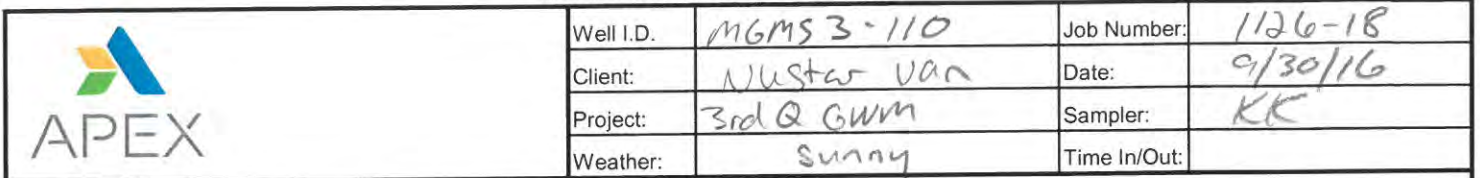 APEX
Well I.D. MGMS3-110 Job Number: 1126-18
Client: NuStar Van Date: 9/30/16
Project: 3rd Q GWM Sampler: KK
Weather: Sunny Time In/Out: